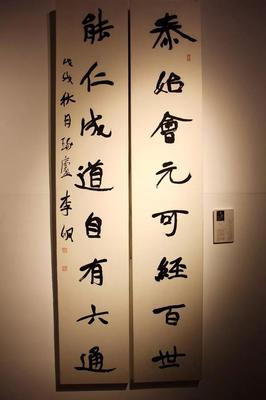 泰始會元可經百世
能仁成道自有六通
戊戌秋日
李